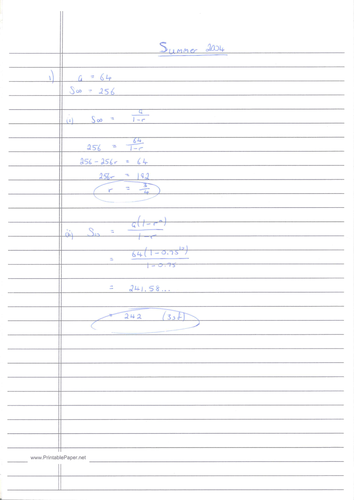 Summer 2024
1) a = 64
S∞ = 256
(i) S∞ = a/(1-r)
256 = 64/(1-r)
256 - 256r = 64
256r = 192
r = 3/4
(ii) S₁₀ = a(1-rⁿ)/(1-r)
= 64(1-0.75¹⁰)/(1-0.75)
= 241.58...
= 242 (3sf)
www.PrintablePaper.net